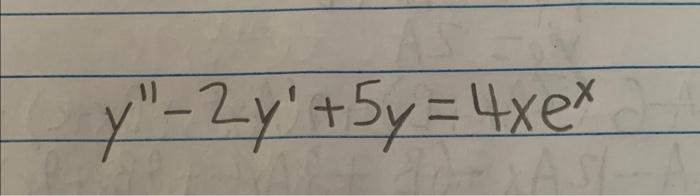 y'' - 2y' + 5y = 4xeˣ